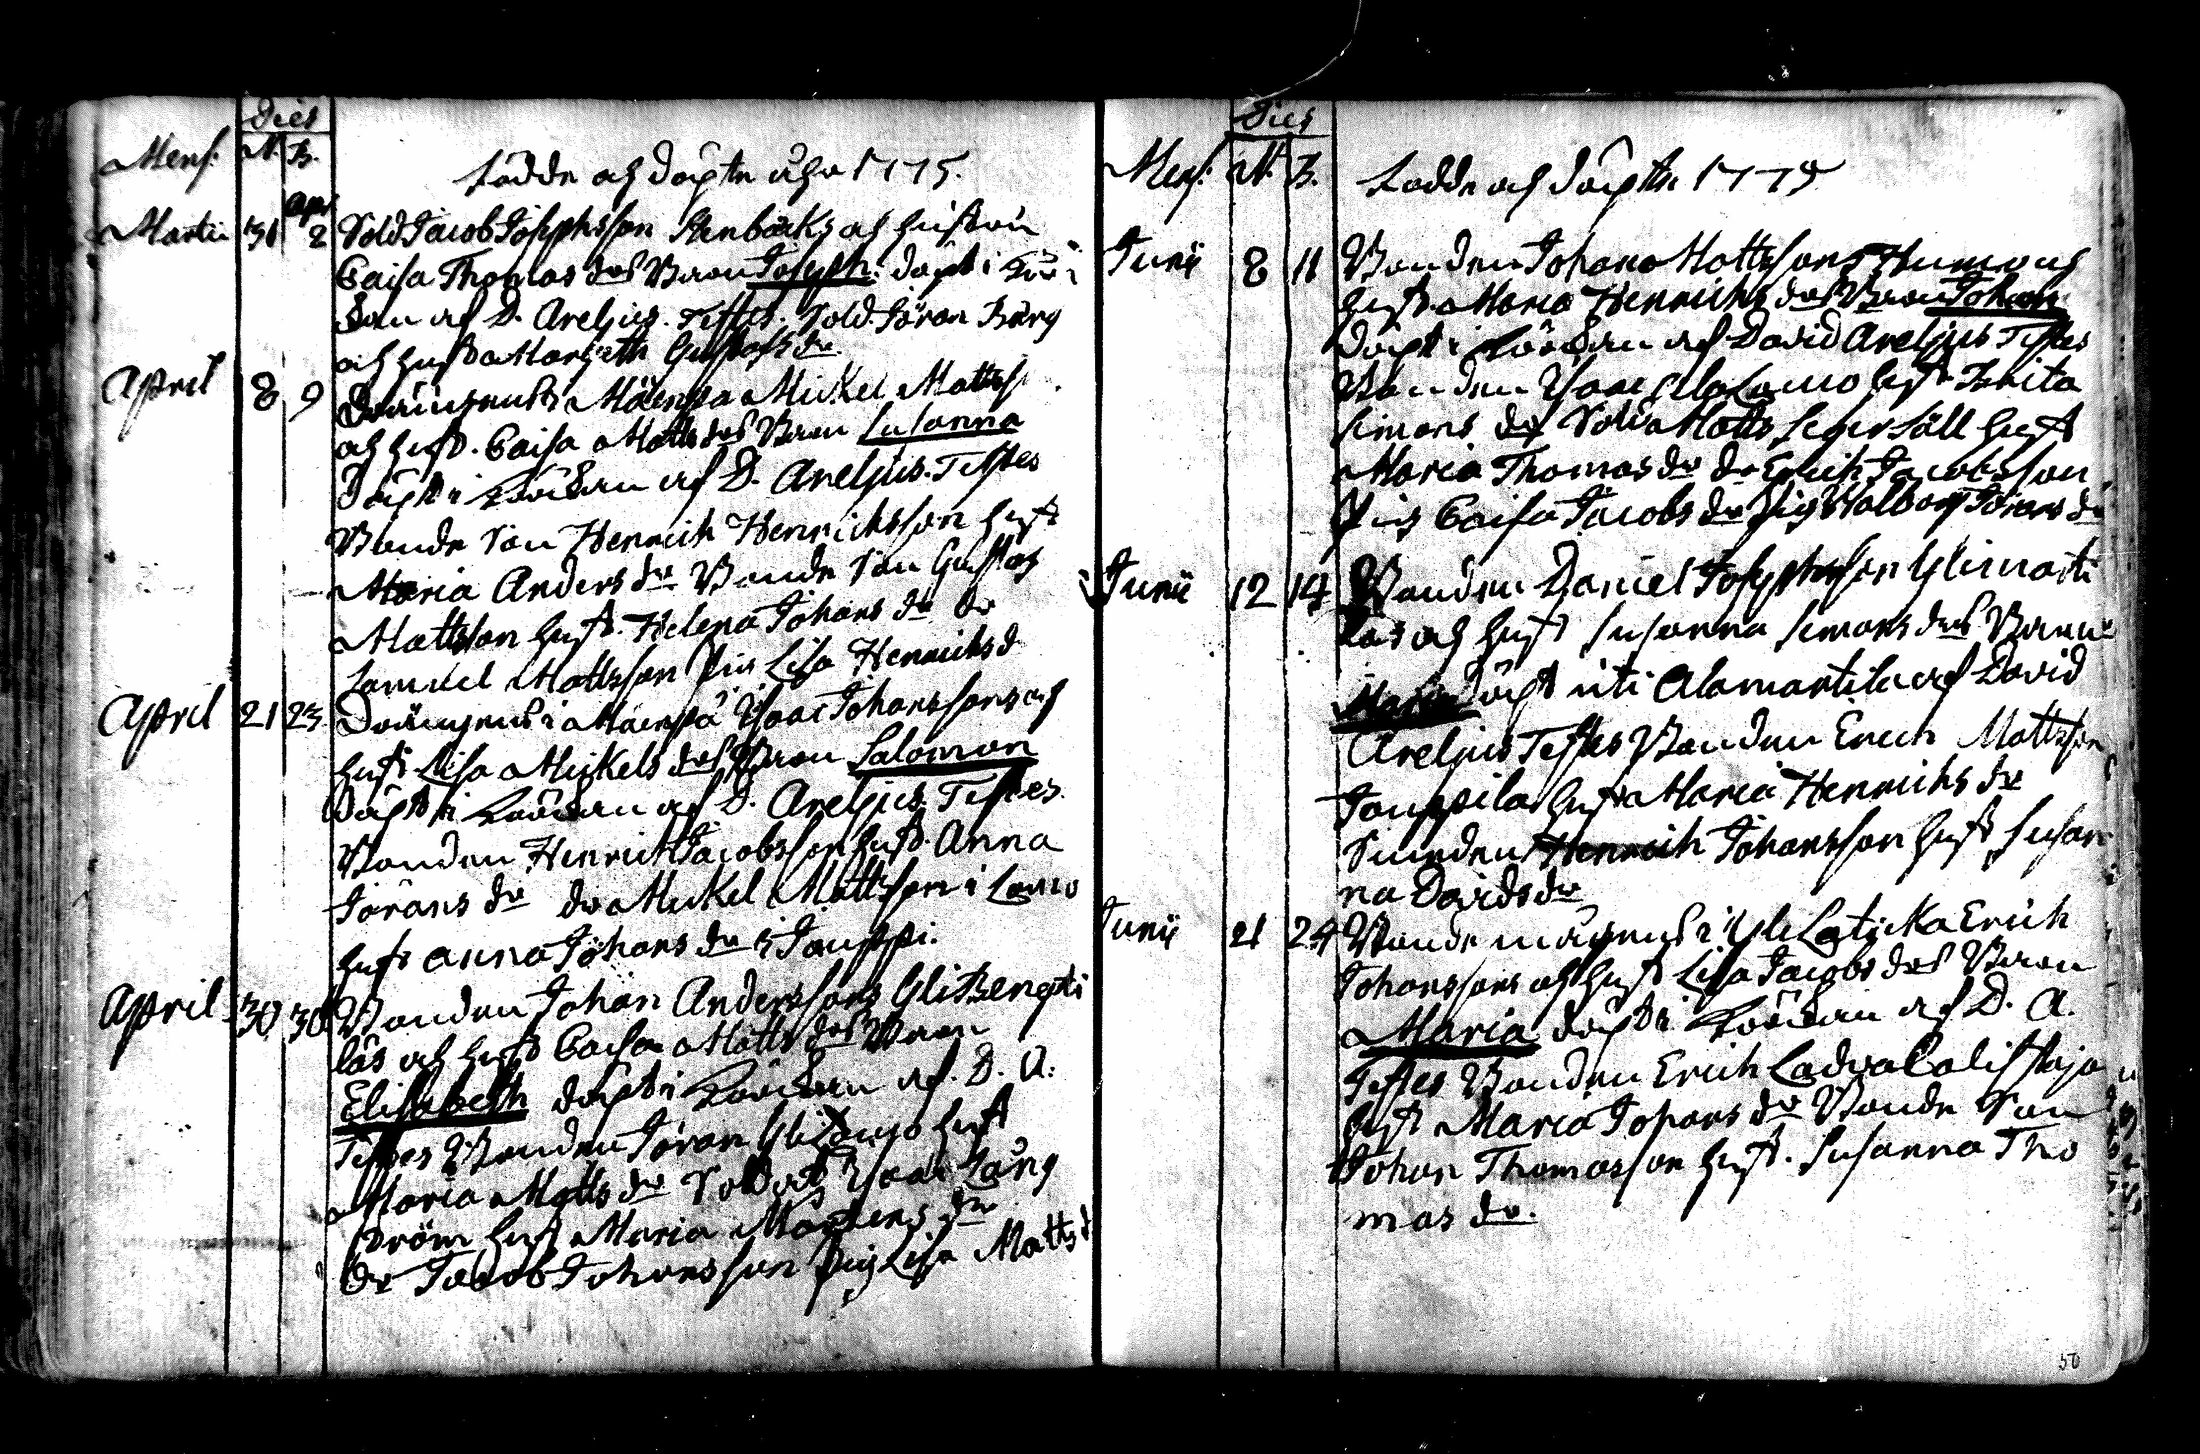 Dies
Mens. N. B.
Födde och döpte åhr 1775.
Apr
Martii 31 2 Sold Jacob Josephsson Stenbäcks och hustru
Caisa Thomas dos Barn Joseph. döpt i Kör
kan af D. Areljus. Testes. Sold. Jöran Berg
och hust Margeth Gustafs dr
April 8 9 Drängens i Mäenpä Mickel Mattss
och hust. Caisa Matts dos Barn Susanna
döpt i Körckan af D. Areljus. Testes
Bonde Son Henrich Henrichsson hust
Maria Anders dr Bonde Son Gustaf
Mattsson hust. Helena Johans dr dr
Samuel Mattsson Pig Lisa Henrichs d
April 21 23 Drängens i Mäenpä Isaac Johanssons och
hust Lisa Mickels dos Barn Salomon
döpt i Körckan af D. Areljus. Testes.
Bonden Henrich Jacobsson hust. Anna
Jörans dr dr Mickel Mattsson i Lamo
hust Anna Johans dr i Jouppi.
April 30 30 Bonden Johan Anderssons
och hust Caisa Matts dos Barn
Elisabeth döpt i Körckan af. D. A.
Testes Bonden Jöran hust
Maria Matts dr Soldat Isaac Lång
ström hust Maria Mårtens dr
dr Jacob Johansson Pig Lisa Matts d
Dies
Mens. N. B.
Födde och döpte 1775
Junii 8 11 Bonden Johan Mattssons och
hust Maria Henrichs dos Barn Johan
döpt i Körckan af David Areljus Testes
Bonden Isaac hust Brita
Simons dr Sold Matts Segersäll hust
Maria Thomas dr dr Erich Jacobsson
Pig Caisa Jacobs dr Pig Walborg Jörans dr
Junii 12 14 Bonden Daniel Josephsson Ylimarti
las och hust Susanna Simons dos Barn
Maria döpt uti Alamartila af David
Areljus Testes Bonden Erich Mattsson
Jouppila hust Maria Henrichs dr
Henrich Johansson hust Susan
na Davids dr
Junii 21 24 Bonde mågens i Yli Erich
Johanssons och hust Lisa Jacobs dos Barn
Maria döpt i Körckan af D. A.
Testes Bonden Erich
hust Maria Johans dr Bonde Son
Johan Thomasson hust. Susanna Tho
mas dr.
50